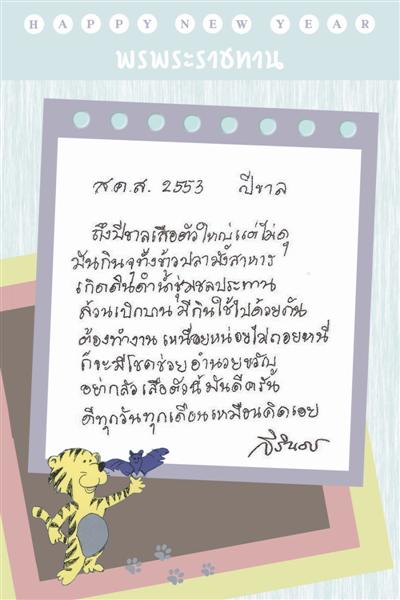 HAPPY NEW YEAR
พรพระราชทาน
ส.ค.ส. 2553 ปีขาล
ถึงปีขาลเสือตัวใหญ่แต่ไม่ดุ
มันกินจุทั้งข้าวปลามังสาหาร
เกิดดินดำน้ำชุ่มชลประทาน
ล้วนเบิกบาน มีกินใช้ไปด้วยกัน
ต้องทำงาน เหนื่อยหน่อยไม่ถอยหนี
ก็จะมีโชคช่วย อำนวยขวัญ
อย่ากลัว เสือตัวนี้ มันดีครัน
ดีทุกวันทุกเดือนเหมือนคิดเอย
สิรินธร